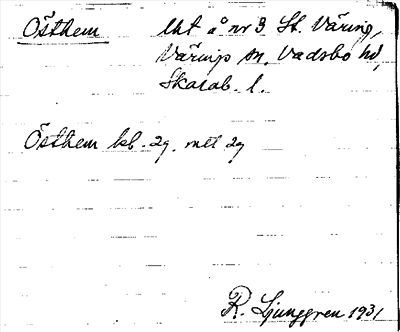 Östhem lht å nr 3 St. Väring,
Värings sn, Vadsbo hd,
Skarab. l.
Östhem kb. 29. mtl 29
R. Ljunggren 1931